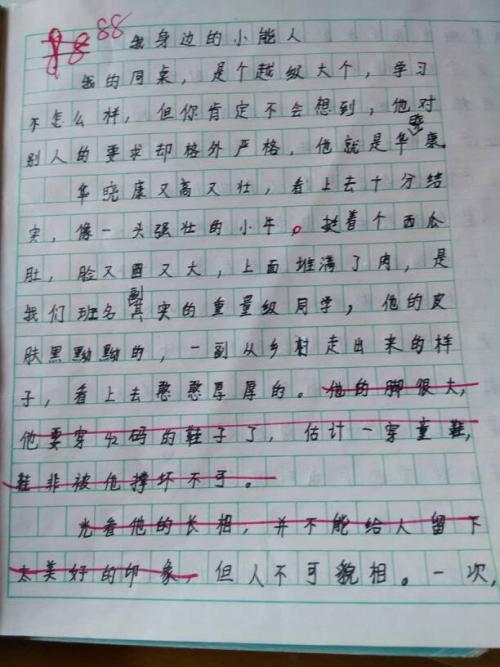 88 我身边的小能人
我的同桌，是个越级大个，学习
不怎么样，但你肯定不会想到，他对
别人的要求却格外严格，他就是华晓康
华晓康又高又壮，看上去十分结
实，像一头强壮的小牛。挺着个西瓜
肚，脸又圆又大，上面堆满了肉，是
我们班名副其实的重量级同学，他的皮
肤黑黝黝的，一副从乡村走出来的样
子，看上去憨憨厚厚的。他的脚很大，
他要穿42码的鞋子了，估计一穿童鞋，
鞋非被他撑坏不可。
光看他的长相，并不能给人留下
太美好的印象，但人不可貌相。一次，